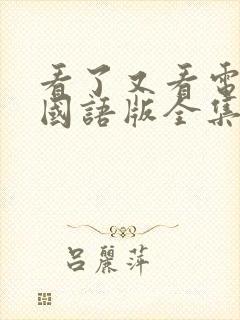 看了又看電
國語版全集
呂麗萍